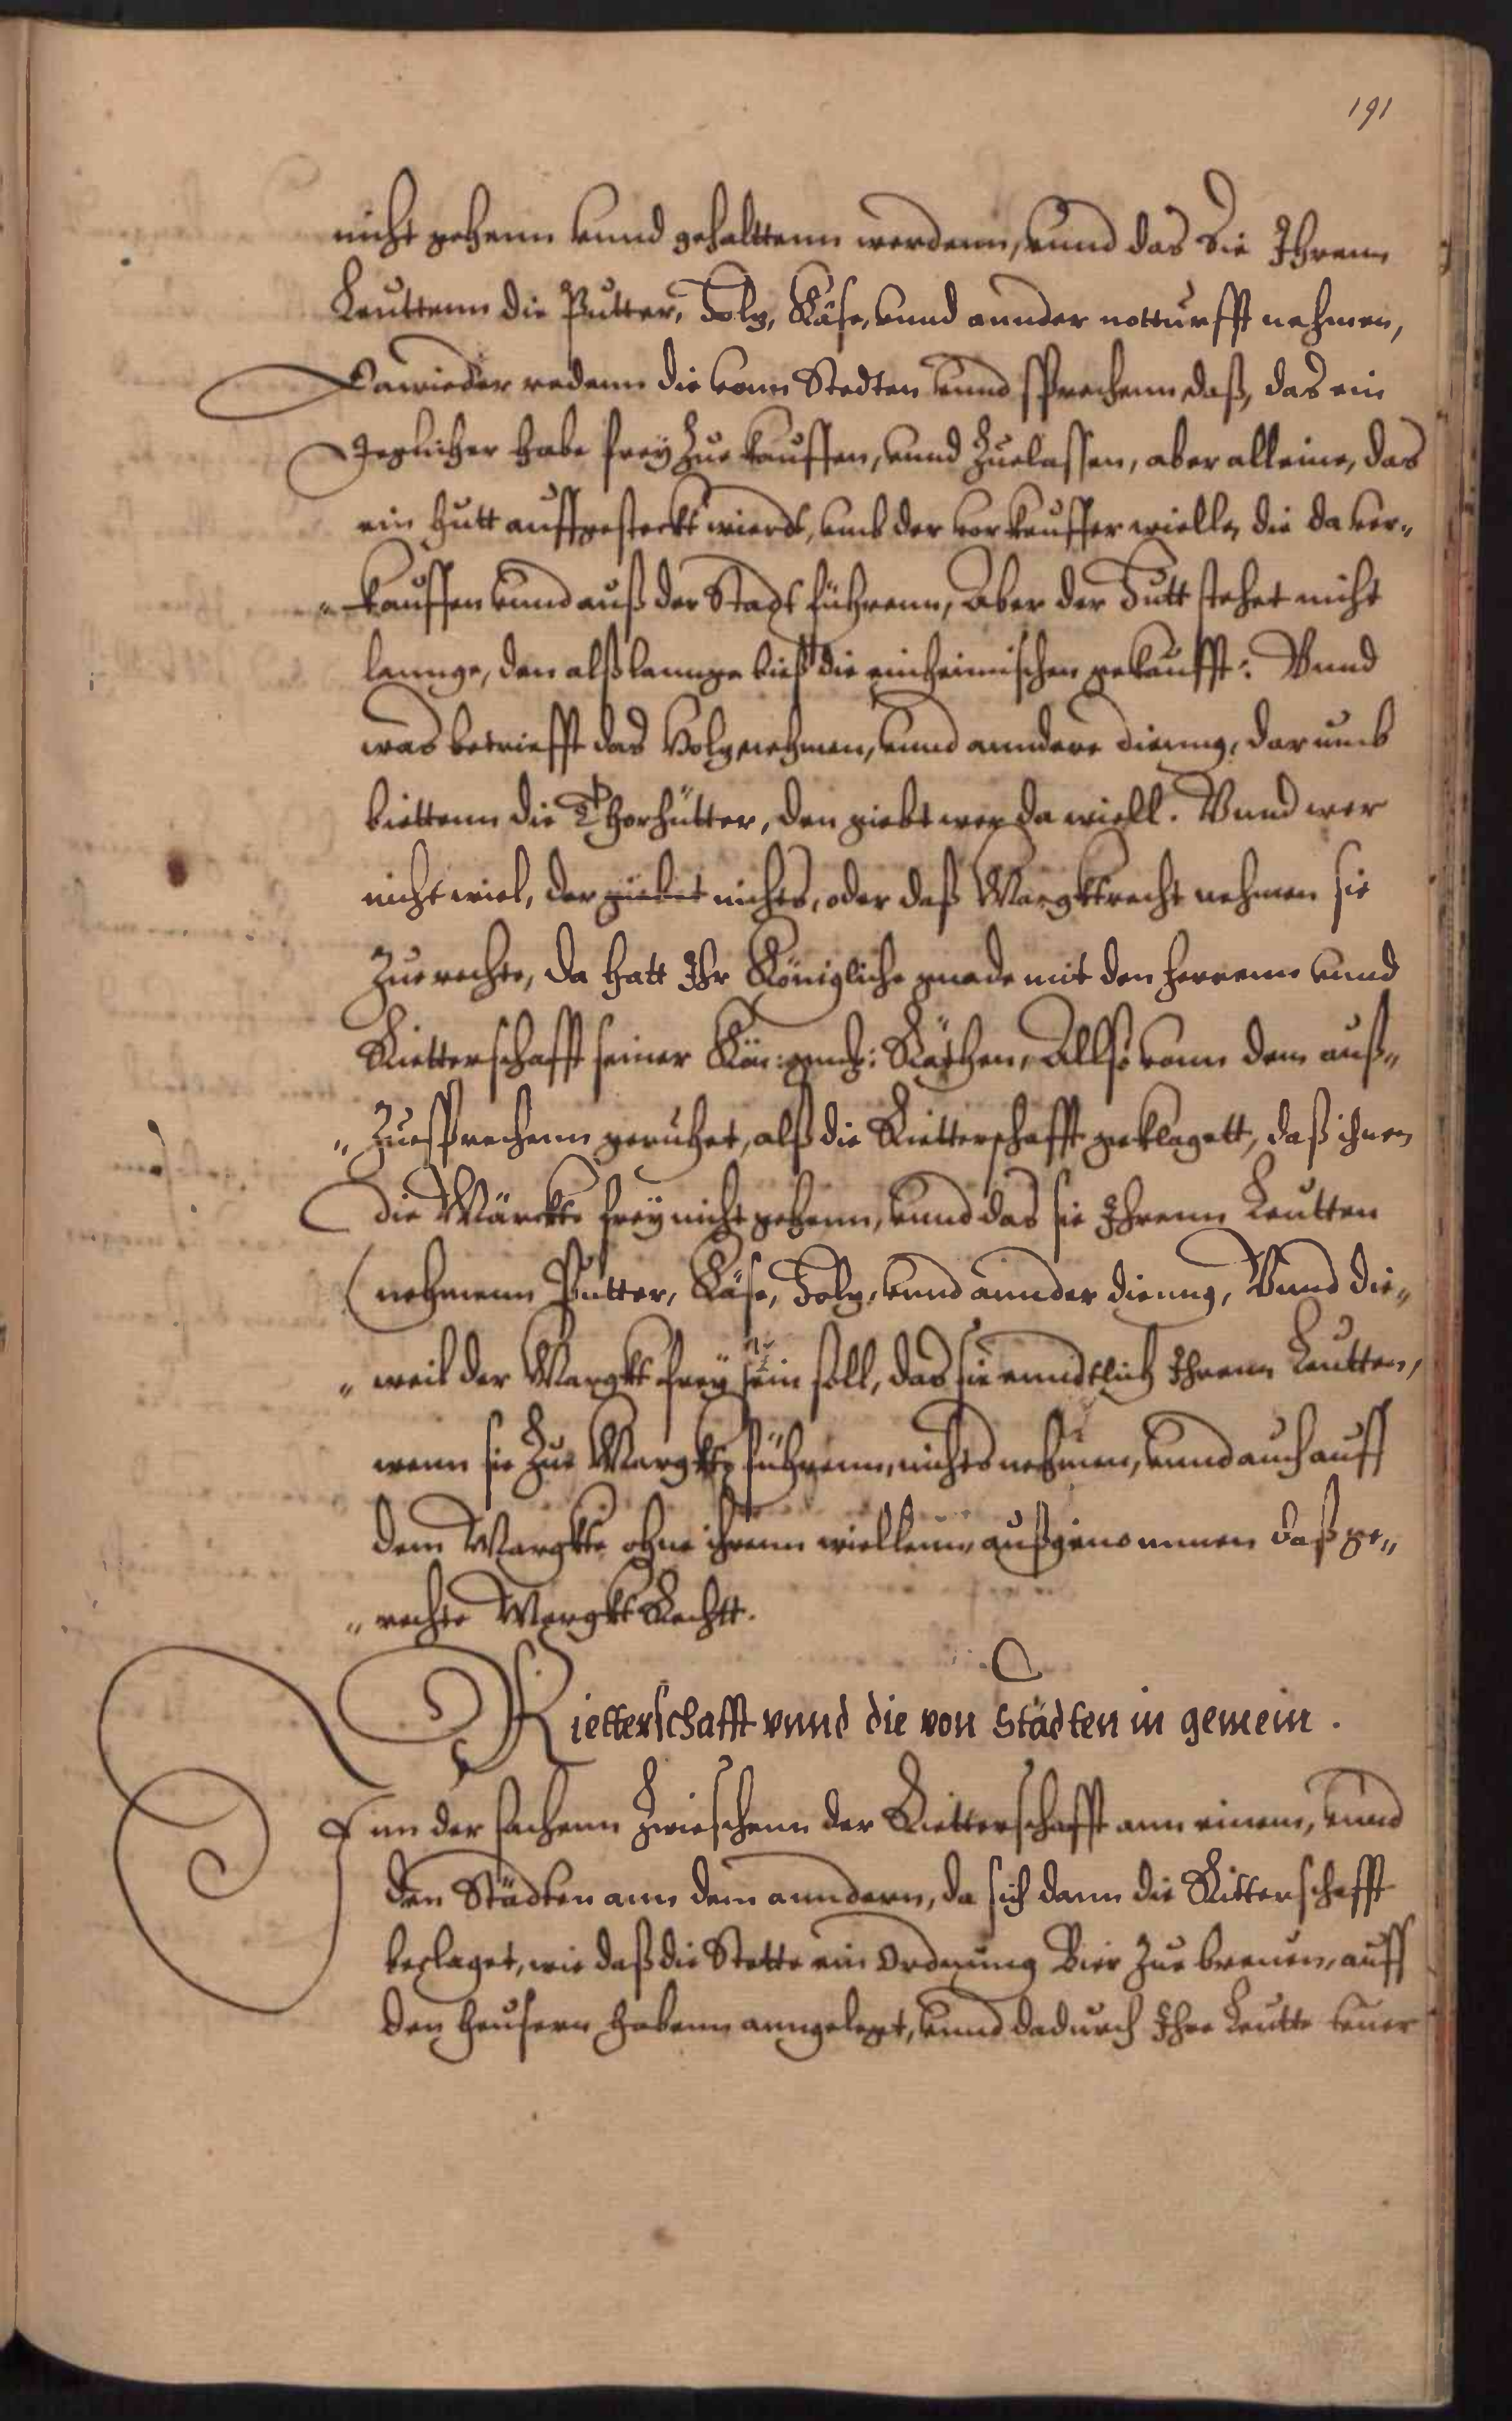 191
nicht gehenn vnnd gehalttenn werdenn, vnnd das Sie Ihrenn
Leuttenn die Putter, Holz, Käse, vnnd annder notturfft nehmen,
Dawieder redenn die vonn Stedten vnnd sprechenn daß, das ein
Jeglicher habe frey Zue kauffen, vnnd Zuelassen, aber alleine, das
ein hutt auffgesteckt wierdt, vmb der vorkeuffer wielle, die da ver„
„kauffen vnnd auß der Stadt führenn, Aber der Hutt stehet nicht
lannge, den alß lannge bieß die einheimischen gekaufft: Vnnd
was betriefft das Holznehmen, vnnd anndere dienng, darumb
biettenn die Thorhütter, den giebt wer da wiell. Vnnd wer
nicht wiel, der giebet nichts, oder daß Margktrecht nehmen sie
Zue rechte, da hatt Ihr Königliche gnade mit den herrenn vnnd
Rietterschafft seiner Kön: gnad: Räthen, Allso vonn dem auß„
„Zuesprechenn geruhet, alß die Rietterschafft geklagett, daß ihnen
die Märckte frey nicht gehenn, vnnd das sie Ihrenn Leutten
nehmenn Putter, Käse, Holz, vnnd annder dienng, Vnnd die„
„weil der Margkt frey sein soll, das sie enndtlich Ihrenn Leutten,
wenn sie Zue Margkte führenn, nichts nehmen, vnnd auch auff
dem Margkte ohne ihrenn wiellenn, außgenommen daß ge„
„rechte Margkt Rechtt.
Rietterschafft vnnd die von Städten in gemein.
Inn der sachenn Zwieschenn der Rietterschafft ann einem, vnnd
den Städten ann dem anndern, da sich dann die Ritterschafft
beclaget, wie daß die Stette ein Ordnung Bier Zue breuen, auff
den heusern habenn anngelegt, vnnd dadurch Ihre Leutte teuer